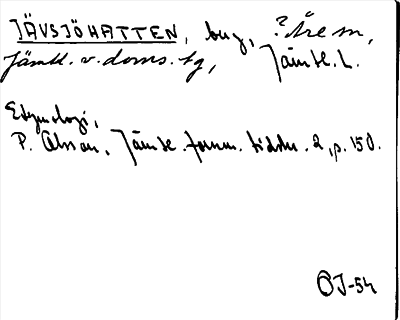 JÄVSJÖHATTEN, berg, ? Åre sn,
Jämtl. v. doms. tg, Jämtl. l.
Etymologi,
P. Olsson, Jämtl. fornm. tidskr. 2, p. 150.
OJ-54